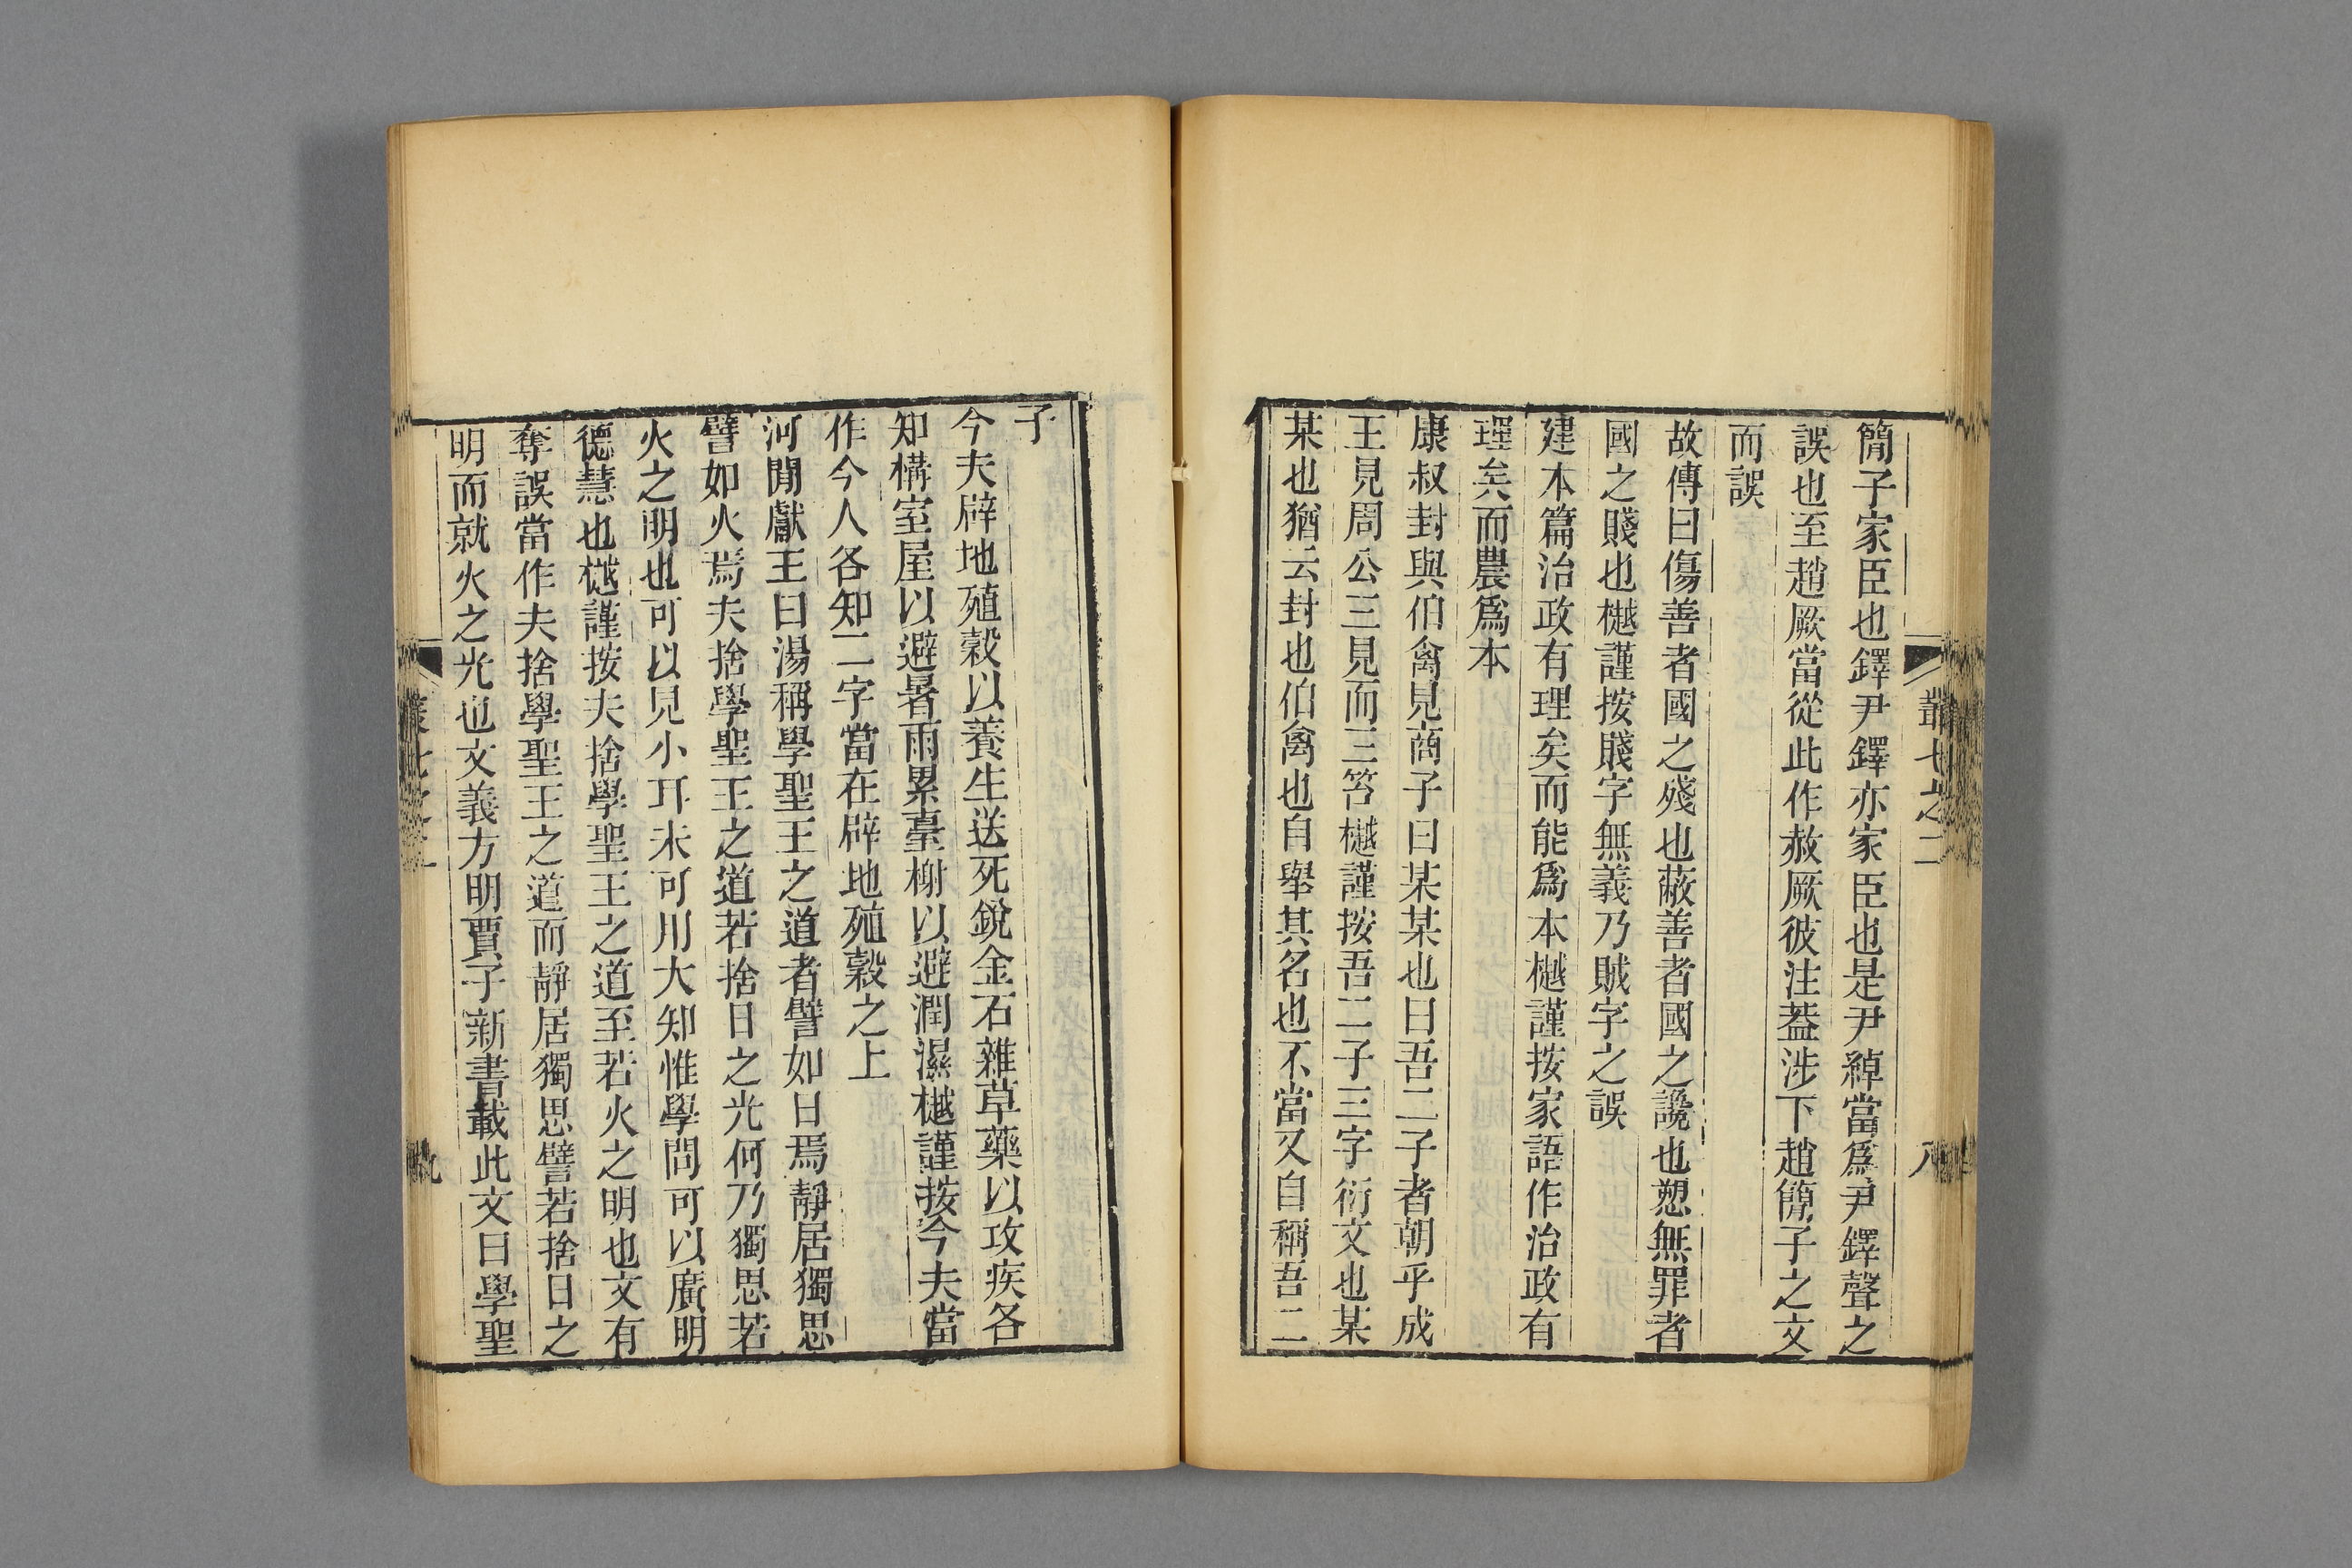 叢七之二
八
簡子家臣也鐸尹鐸亦家臣也是尹綽當爲尹鐸聲之
誤也至趙厥當從此作赦厥彼注葢涉下趙簡子之文
而誤
故傳曰傷善者國之殘也蔽善者國之讒也愬無罪者
國之賤也樾謹按賤字無義乃賊字之誤
建本篇治政有理矣而能爲本樾謹按家語作治政有
理矣而農爲本
康叔封與伯禽見商子曰某某也日吾二子者朝乎成
王見周公三見而三笞樾謹按吾二子三字衍文也某
某也猶云封也伯禽也自舉其名也不當又自稱吾二
子
今夫辟地殖穀以養生送死銳金石雜草藥以攻疾各
知構室屋以避暑雨累臺榭以避潤濕樾謹按今夫當
作今人各知二字當在辟地殖穀之上
河閒獻王曰湯稱學聖王之道者譬如日焉靜居獨思
譬如火焉夫捨學聖王之道若捨日之光何乃獨思若
火之明也可以見小耳未可用大知惟學問可以廣明
德慧也樾謹按夫捨學聖王之道至若火之明也文有
奪誤當作夫捨學聖王之道而靜居獨思譬若捨日之
明而就火之光也文義方明賈子新書載此文曰學聖
九